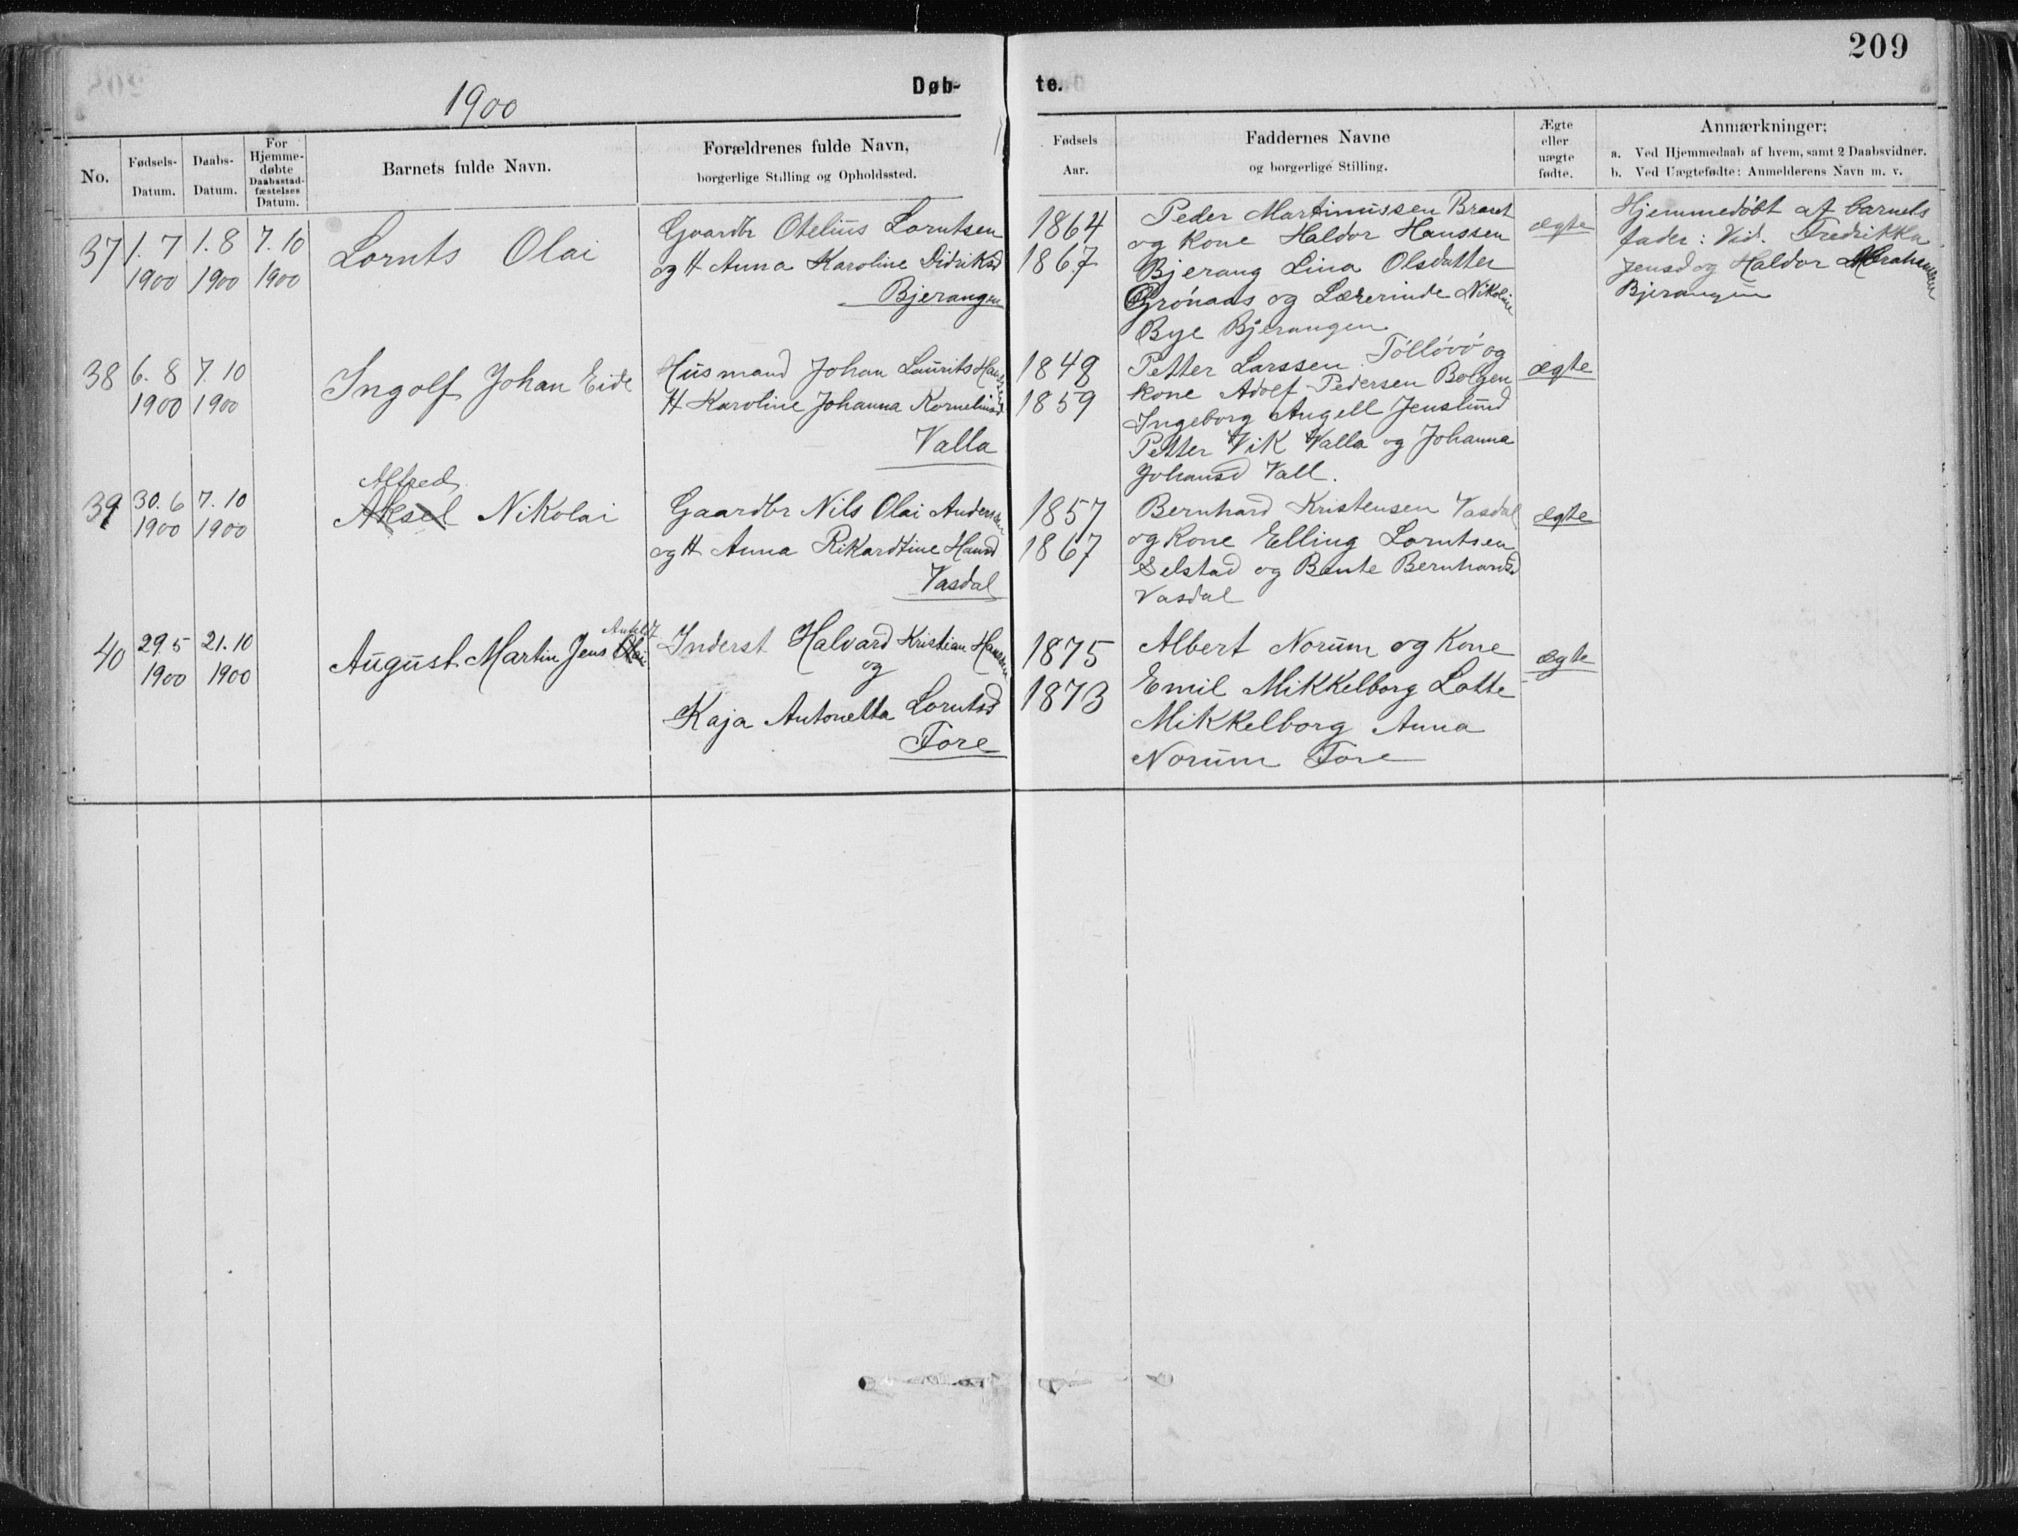 209
1900
Døb-
te.
No.
Fødsels-
Datum.
Daabs-
Datum.
For
Hjemme-
døbte
Daabsstad-
fæstelses
Datum.
Barnets fulde Navn.
Forældrenes fulde Navn,
borgerlige Stilling og Opholdssted.
Fødsels
Aar.
Faddernes Navne
og borgerlige Stilling.
Ægte
eller
uægte
fødte.
Anmærkninger;
a. Ved Hjemmedaab af hvem, samt 2 Daabsvidner.
b. Ved Uægtefødte: Anmelderens Navn m. v.
37
1. 7
1900
1. 8
1900
7. 10
1900
Lornts Olai
Gaardbr Otelius Lorntsen
og H Anna Karoline Didriksd
Bjerangen
1864
1867
Peder Martinussen Braset
og Kone Haldor Hanssen
Bjerang Lina Olsdatter
Grønaas og Lærerinde Nikoline
Bye Bjerangen
ægte
Hjemmedøbt af barnets
fader: Vid. Fredrikka
Jensd og Haldor
Bjerangen
38
6. 8
1900
7. 10
1900
Ingolf Johan Eide
Husmand Johan Laurits Hanssen
H Karoline Johanna Korneliusd
Valla
1848
1859
Petter Larssen Tølløvø og
Kone Adolf Pedersen Bolgen
Ingeborg Angell Jenslund
Petter Vik Valla og Johanna
Johansd Vall.
ægte
39
30. 6
1900
7. 10
1900
Alfred
Aksel Nikolai
Gaardbr Nils Olai Anderssen
og H Anna Rikardtine Hansd
Vasdal
1857
1867
Bernhard Kristensen Vasdal
og Kone Elling Lorntsen
Selstad og Bente Bernhardsd
Vasdal
ægte
40
29. 5
1900
21. 10
1900
August Martin Jens Olai
Inderst Halvard Kristian Hanssen
og
Kaja Antonetta Lorntsd
Fore
1875
1873
Albert Norum og Kone
Emil Mikkelborg Lotte
Mikkelborg Anna
Norum Fore
ægte